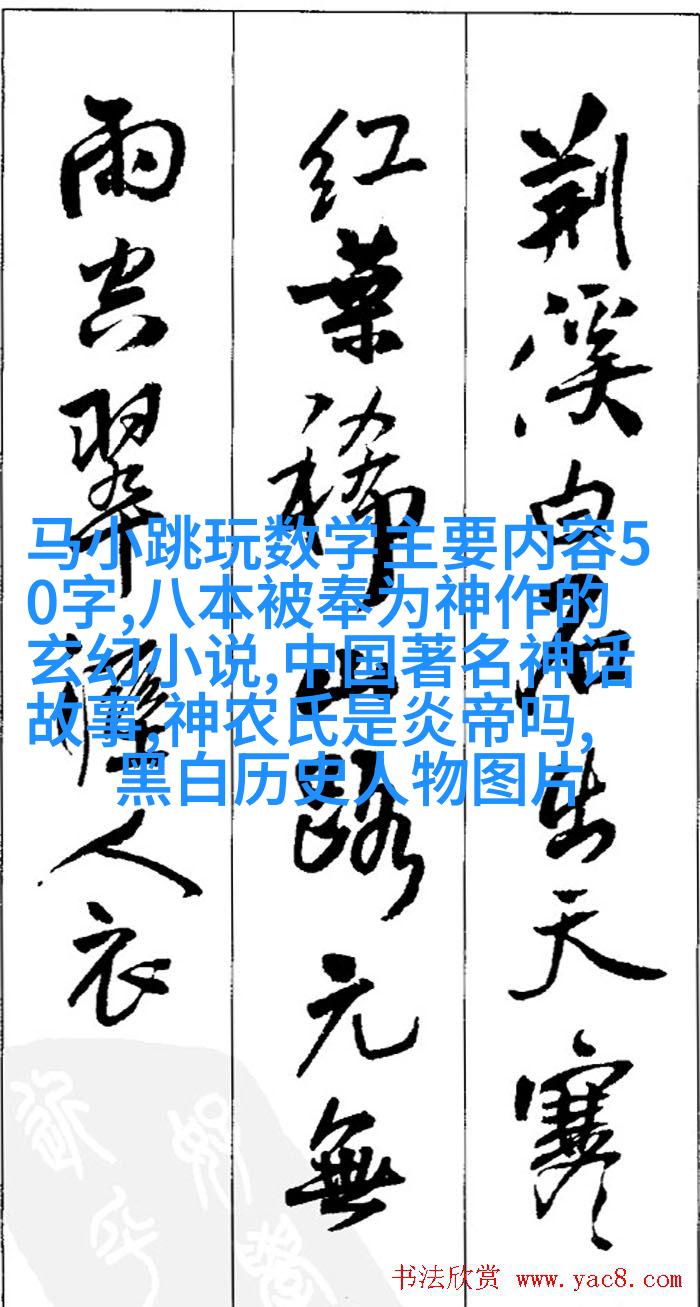 荆溪白石出天寒
红葉稀山路元無
雨空翠濕人衣
马小跳玩数学主要内容5
0字,八本被奉为神作的
玄幻小说,中国著名神话
故事,神农氏是炎帝吗,
黑白历史人物图片
书法欣赏 www.yac8.com